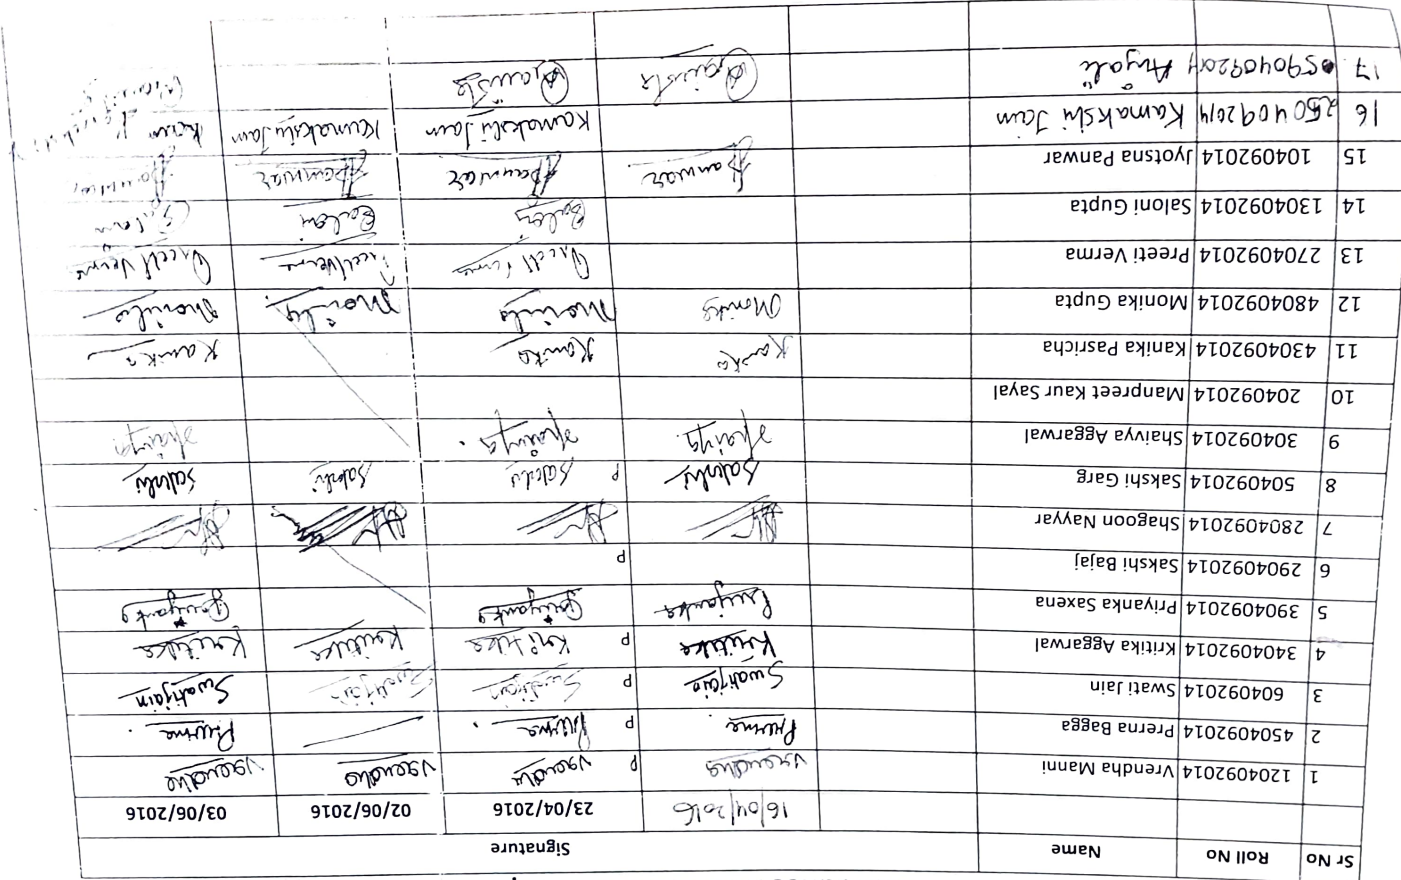 Sr No Roll No Name Signature
16/04/2016 23/04/2016 02/06/2016 03/06/2016
1 1204092014 Vrendha Manni Vrendha P Vrendha Vrendha Vrendha
2 4504092014 Prerna Bagga Prerna P Prerna Prerna
3 604092014 Swati Jain Swatijain P Swatijain Swatijain Swatijain
4 3404092014 Kritika Aggarwal Kritika P Kritika Kritika Kritika
5 3904092014 Priyanka Saxena Priyanka Priyanka Priyanka
6 2904092014 Sakshi Bajaj P
7 2804092014 Shagoon Nayyar
8 504092014 Sakshi Garg Sakshi P Sakshi Sakshi Sakshi
9 304092014 Shaivya Aggarwal Shaivya Shaivya Shaivya
10 204092014 Manpreet Kaur Sayal
11 4304092014 Kanika Pasricha Kanika Kanika Kanika
12 4804092014 Monika Gupta Monika Monika Monika Monika
13 2704092014 Preeti Verma Preeti Verma Preeti Verma Preeti Verma
14 1304092014 Saloni Gupta Saloni Saloni
15 104092014 Jyotsna Panwar Panwar Panwar Panwar Panwar
16 2504092014 Kamakshi Jain Kamakshi Jain Kamakshi Jain
17 5904092014 Anjali